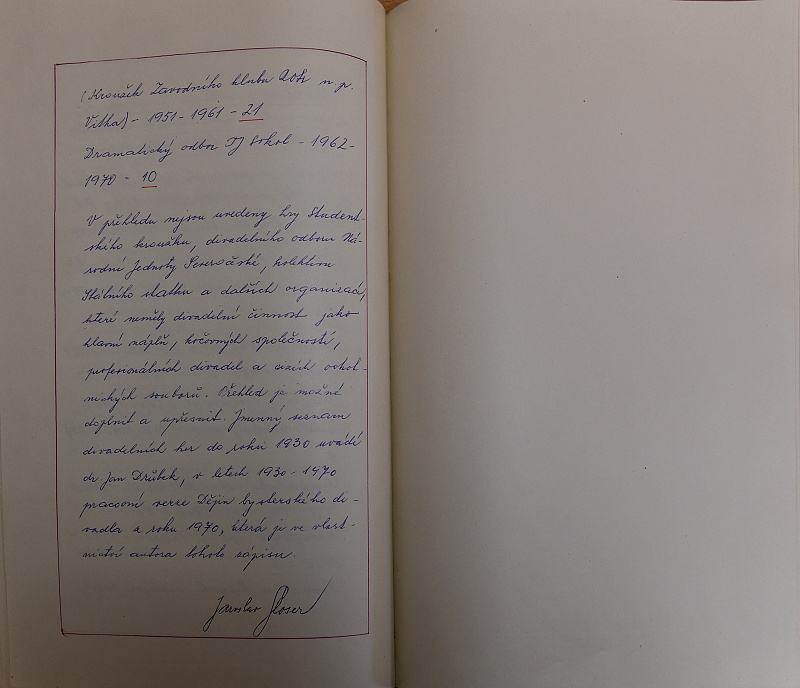 (Kroužek Závodního klubu ROH n. p.
Vitka) - 1951 - 1961 - 21
Dramatický odbor TJ Sokol - 1962 -
1970 - 10
V přehledu nejsou uvedeny hry Student-
ského kroužku, divadelního odboru Ná-
rodní Jednoty Severočeské, kolektivu
Státního statku a dalších organizací,
které neměly divadelní činnost jako
hlavní náplň, kočovných společností,
profesionálních divadel a cizích ochot-
nických souborů. Přehled je možné
doplnit a upřesnit. Jmenný seznam
divadelních her do roku 1930 uvádí
dr. Jan Drůbek, v letech 1930 - 1970
pracovní verze Dějin bysterského di-
vadla z roku 1970, která je ve vlast-
nictví autora tohoto zápisu.
Jaroslav